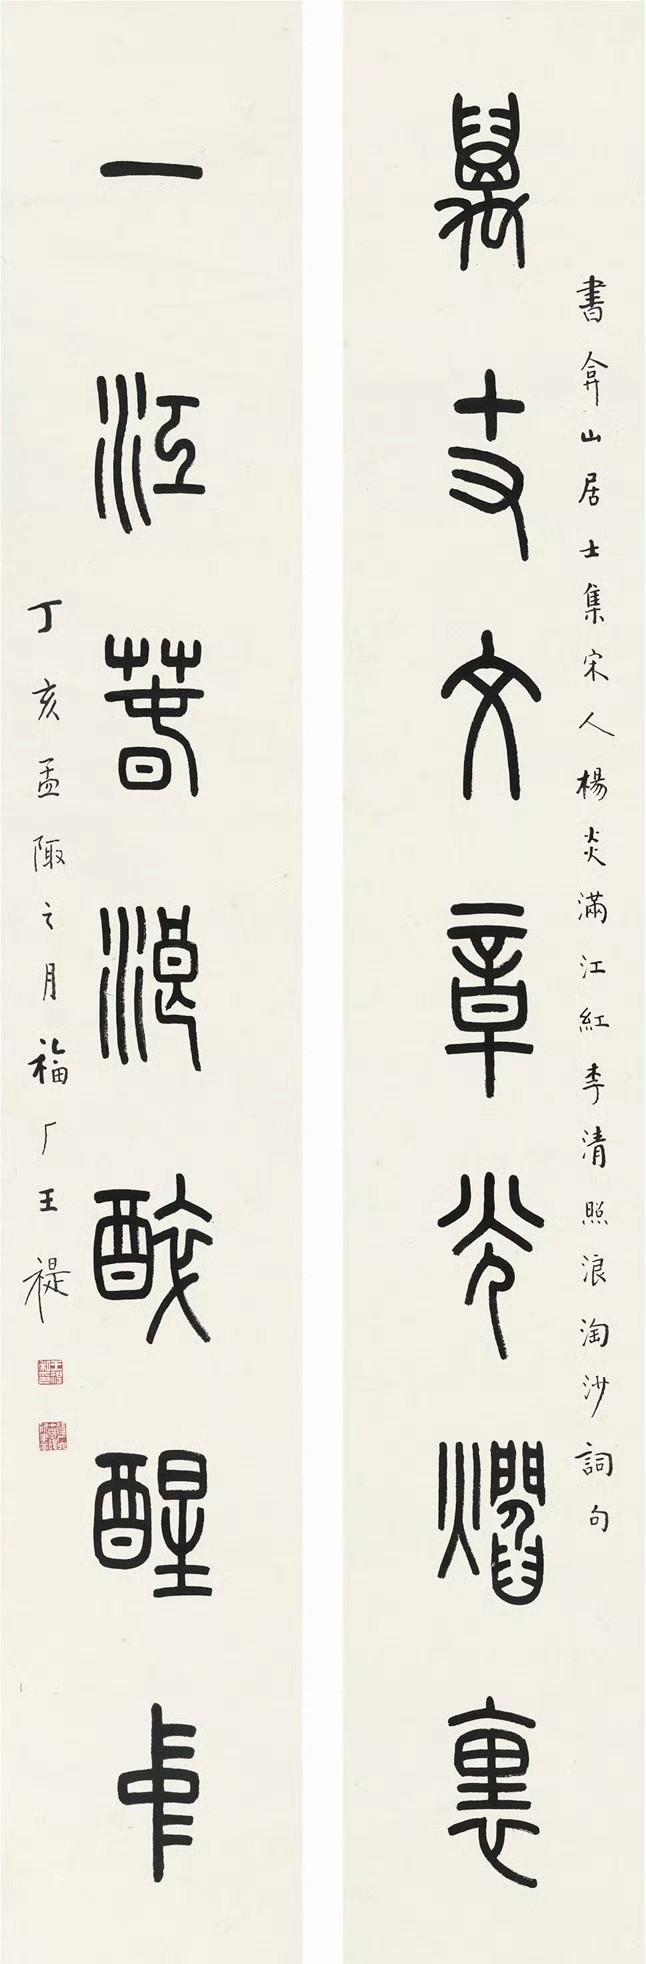 書弇山居士集宋人楊炎滿江紅李清照浪淘沙詞句
萬丈文章光爓裏
一江春浪醉醒中
丁亥孟陬之月福厂王禔